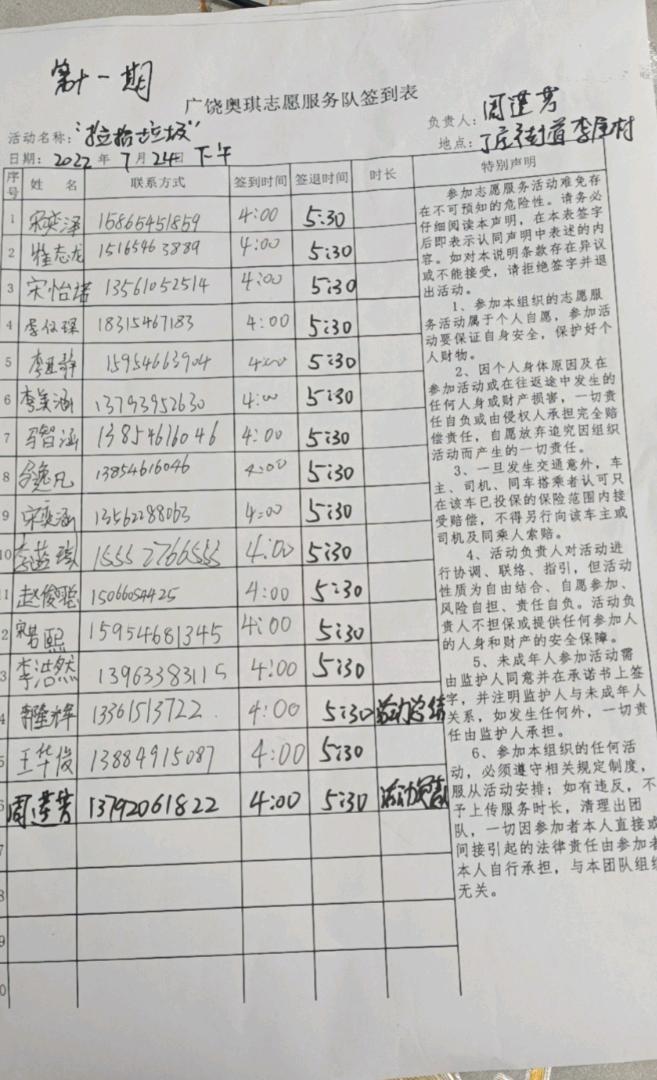 第十一期
广饶奥琪志愿服务队签到表
活动名称：“捡拾垃圾”
负责人：周莲芳
日期：2022年7月24日下午
地点：丁庄街道李屋村
序号 姓名 联系方式 签到时间 签退时间 时长 特别声明
1 宋奕泽 15865451859 4:00 5:30
2 志龙 15165463889 4:00 5:30
3 宋怡诺 13561052514 4:00 5:30
4 李 18315467183 4:00 5:30
5 李 15954663904 4:00 5:30
6 李美涵 13793952630 4:00 5:30
7 马智涵 13854616046 4:00 5:30
8 逸凡 13854616046 4:00 5:30
9 宋奕涵 13562288063 4:00 5:30
10 15552766555 4:00 5:30
1 赵俊聪 15066054425 4:00 5:30
2 宋若熙 15954681345 4:00 5:30
3 李浩然 13963383115 4:00 5:30
4 隆辉 13361513722 4:00 5:30 活动总结
5 王华俊 13884915087 4:00 5:30
6 周莲芳 13792061822 4:00 5:30 活动负责
7
8
9
0
参加志愿服务活动难免存
在不可预知的危险性。请务必
仔细阅读本声明，在本表签字
后即表示认同声明中表述的内
容。如对本说明条款存在异议
或不能接受，请拒绝签字并退
出活动。
1、参加本组织的志愿服
务活动属于个人自愿，参加活
动要保证自身安全，保护好个
人财物。
2、因个人身体原因及在
参加活动或在往返途中发生的
任何人身或财产损害，一切责
任自负或由侵权人承担完全赔
偿责任，自愿放弃追究因组织
活动而产生的一切责任。
3、一旦发生交通意外，车
主、司机、同车搭乘者认可只
在该车已投保的保险范围内接
受赔偿，不得另行向该车主或
司机及同乘人索赔。
4、活动负责人对活动进
行协调、联络、指引，但活动
性质为自由结合、自愿参加、
风险自担、责任自负。活动负
责人不担保或提供任何参加人
的人身和财产的安全保障。
5、未成年人参加活动需
由监护人同意并在承诺书上签
字，并注明监护人与未成年人
关系，如发生任何意外，一切责
任由监护人承担。
6、参加本组织的任何活
动，必须遵守相关规定制度，
服从活动安排；如有违反，不
予上传服务时长，清理出团
队，一切因参加者本人直接或
间接引起的法律责任由参加者
本人自行承担，与本团队组织
无关。